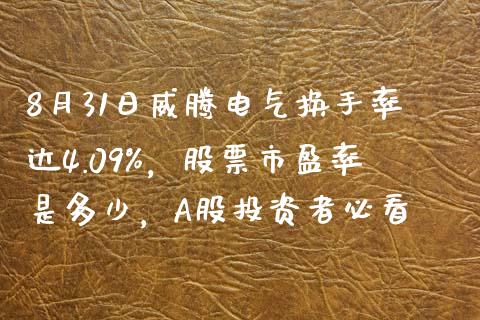 8月31日威腾电气换手率
达4.09%，股票市盈率
是多少，A股投资者必看